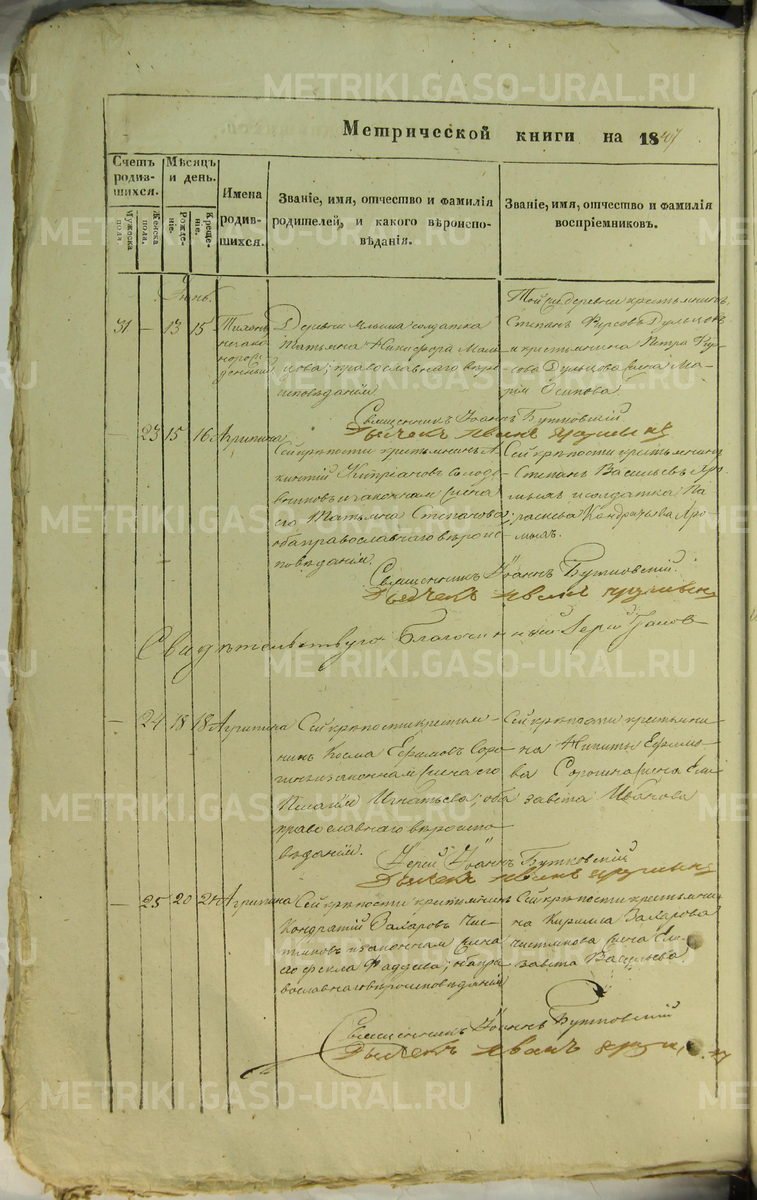 METRIKI.GASO-URAL.RU
Метрической книги на 1847
Счетъ родив-шихся.
Мужеска пола.
Женска пола.
Мѣсяцъ и день.
Рожде-ніе.
Креще-ніе.
Имена родив-шихся.
Званіе, имя, отчество и фамилія
родителей, и какого вѣроиспо-
вѣданія.
Званіе, имя, отчество и фамилія
воспріемниковъ.
Іюнь.
31 — 13 15 Тихонъ
незако
норож
денный
Деревни солдатка
Татьяна Никифора
православнаго вѣро
исповѣданія
Той же деревни крестьянинъ
Степанъ Фирсовъ
и крестьянина Петра Фир
сова жена Ма
рія Осипова
Священникъ Іоаннъ Бутковскій
Дьячекъ Иванъ
23 15 16 Агрипина
Сей крѣпости крестьянинъ
Кипріановъ
и законная жена
его Татьяна Степанова;
оба православнаго вѣроис
повѣданія.
Сей крѣпости крестьянинъ
Степанъ Васильевъ
и солдатка Па
раскева Кондратьева
Священникъ Іоаннъ Бутковскій
Дьячекъ Иванъ
Свидѣтельствую Благочинный Іерей
— 24 18 18 Агрипина
Сей крѣпости крестья-
нинъ Косма Ефимовъ Соро
кинъ и законная жена его
Пелагія Игнатьева; оба
православнаго вѣроиспо
вѣданія.
Сей крѣпости крестьяни
на Никиты Ефимо
ва Сорокина жена Ели
завета Иванова
Іерей Іоаннъ Бутковскій
Дьячекъ Иванъ
— 25 20 21 Агрипина
Сей крѣпости крестьянинъ
Кондратій Захаровъ Чис
тяковъ и законная жена
его Фекла Фаддеева; оба пра
вославнаго вѣроисповѣданія
Сей крѣпости крестьяни
на Кирилла Захарова
Чистякова жена Ели
завета Васильева
Священникъ Іоаннъ Бутковскій
Дьячекъ Иванъ